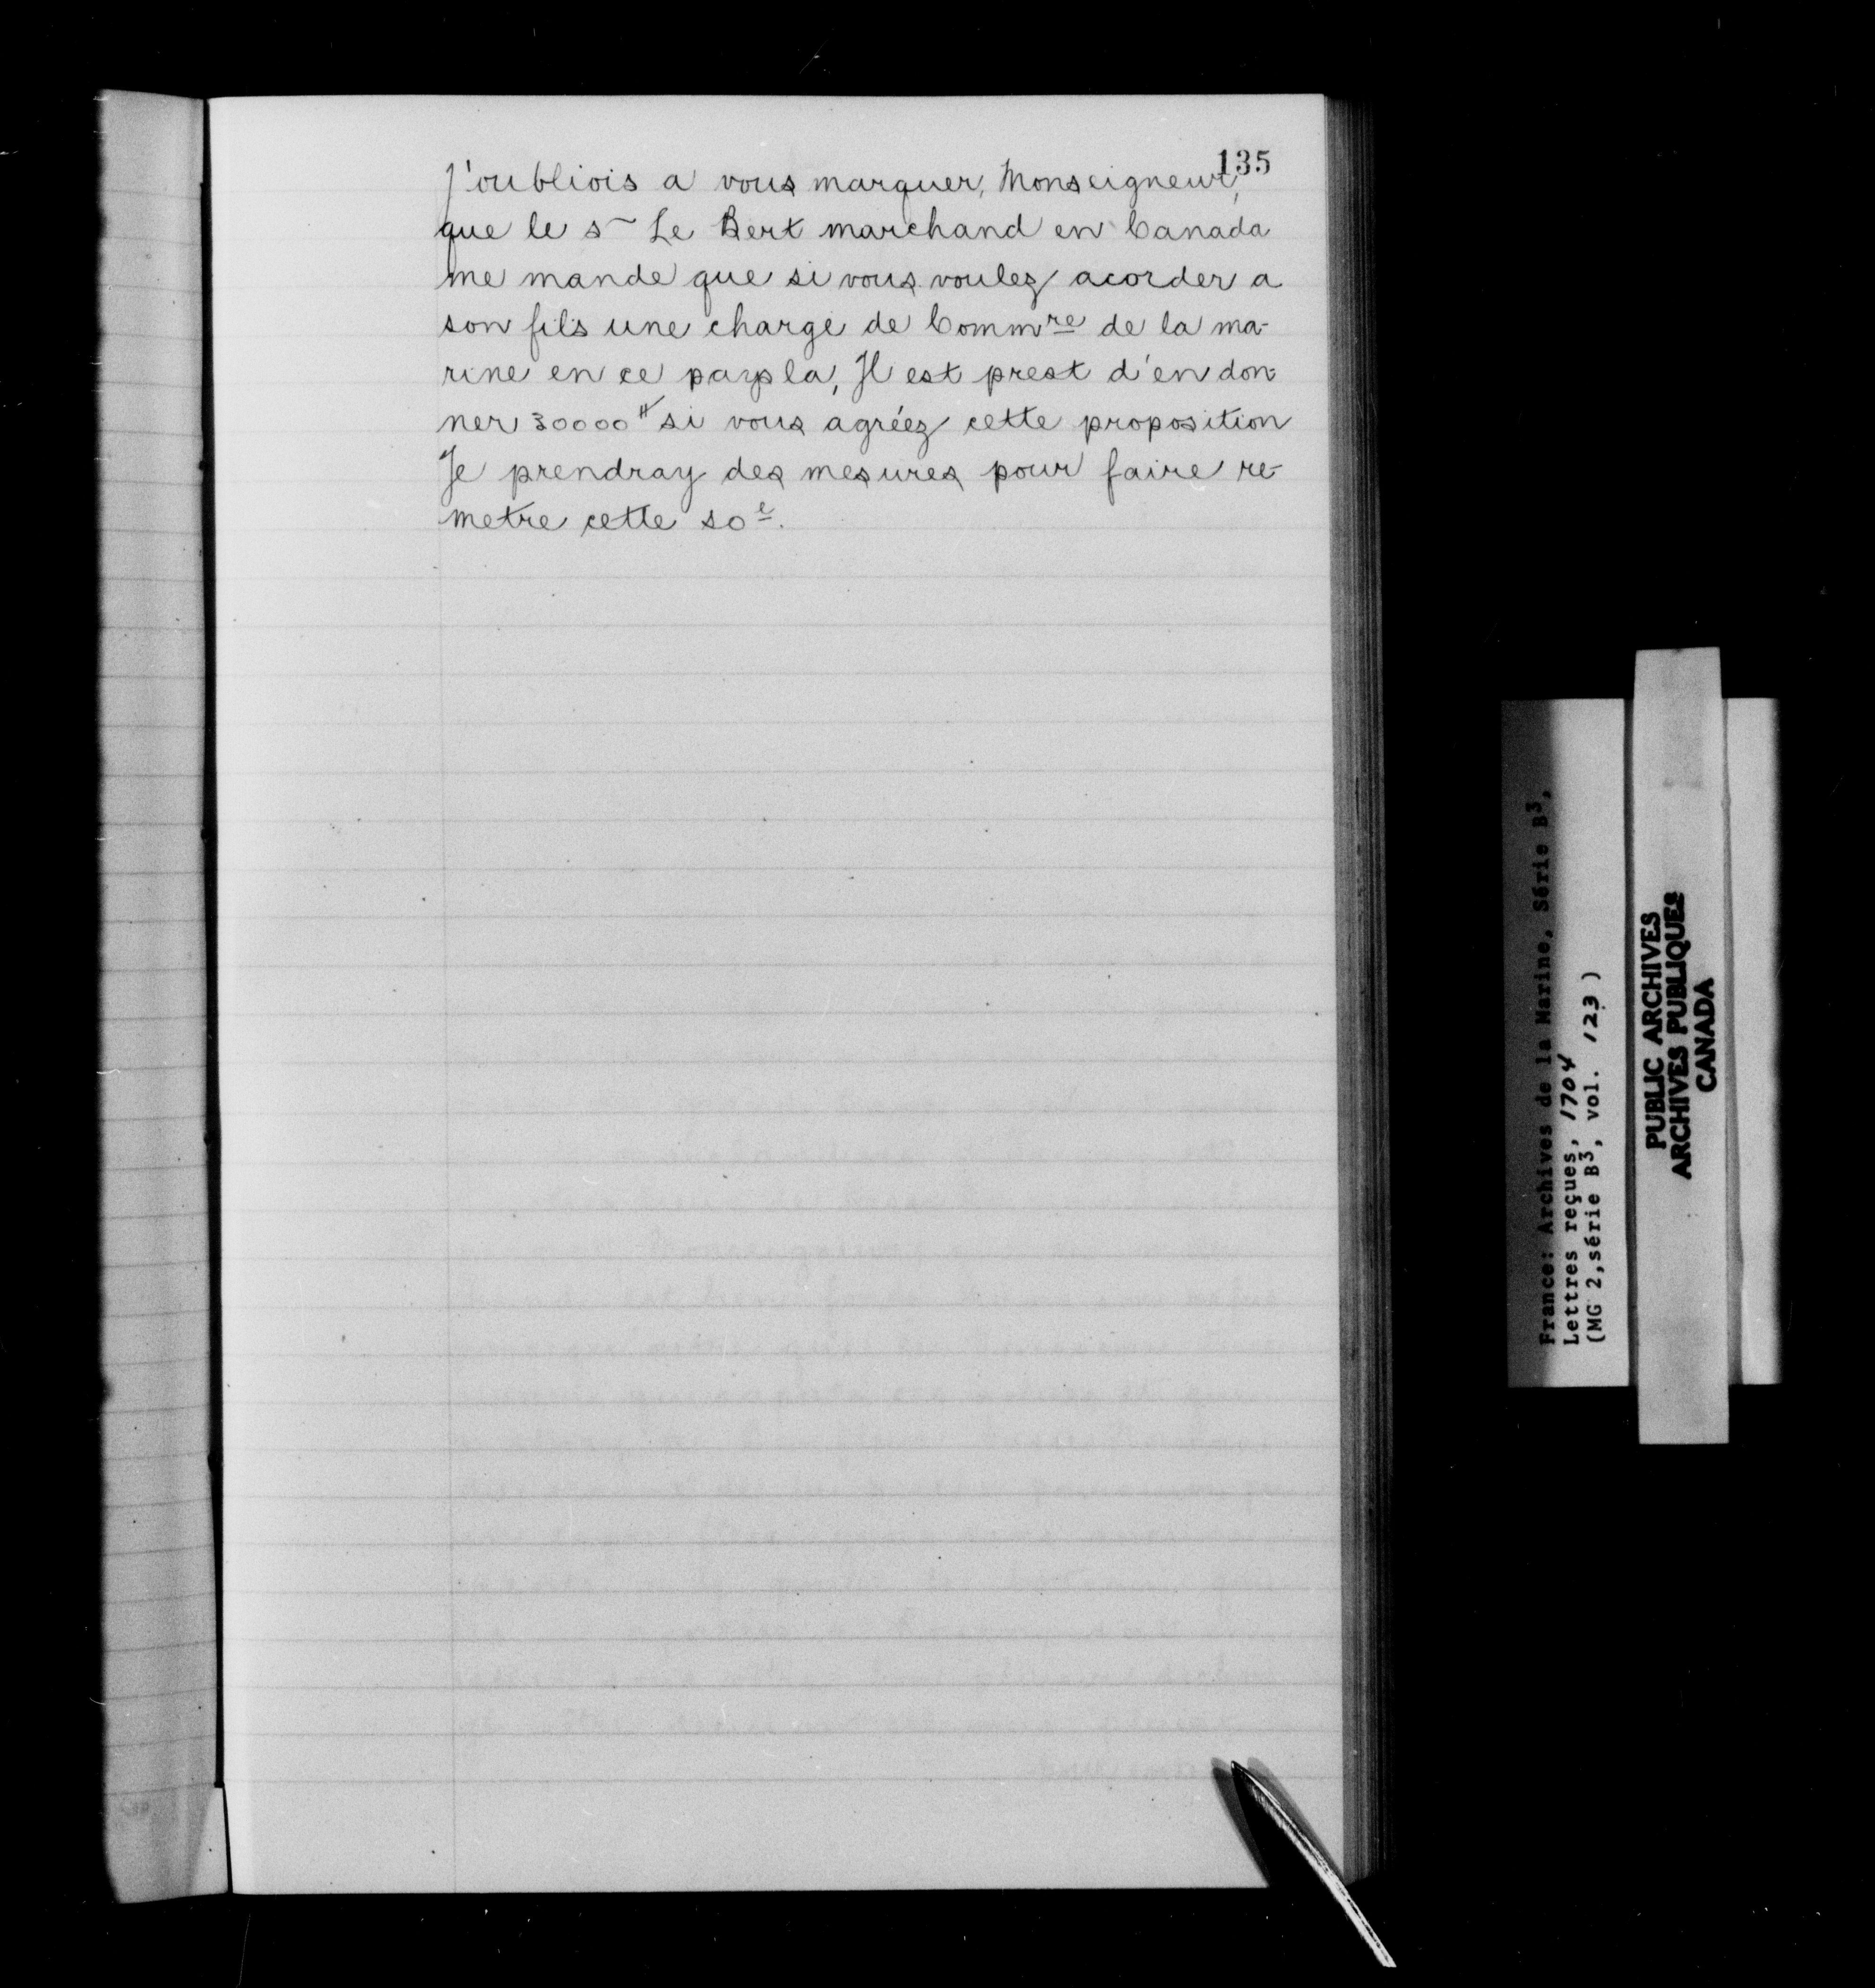 135
J'oubliois a vous marquer, Monseigneur,
que le s~ Le Bert marchand en Canada
me mande que si vous voulez acorder a
son fils une charge de Commre de la ma-
rine en ce pays la, Il est prest d'en don-
ner 30000 ₶ si vous agréez cette proposition
Je prendray des mesures pour faire re-
metre cette soe.
France: Archives de la Marine, Série B3,
Lettres reçues, 1704
(MG 2,série B3, vol. 123)
PUBLIC ARCHIVES
ARCHIVES PUBLIQUES
CANADA